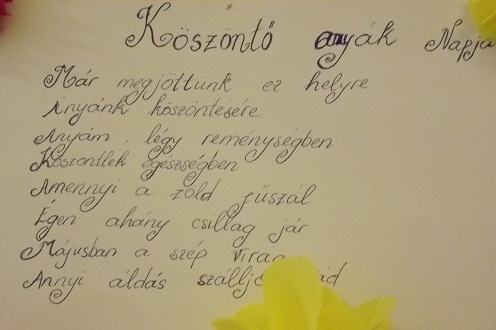 Köszöntő anyák Napja
Már megjöttünk ez helyre
Anyánk köszöntésére
Anyám, légy reménységben
Köszöntlek egészségben
Amennyi a zöld fűszál
Égen ahány csillag jár
Májusban a szép virág
Annyi áldás szálljon